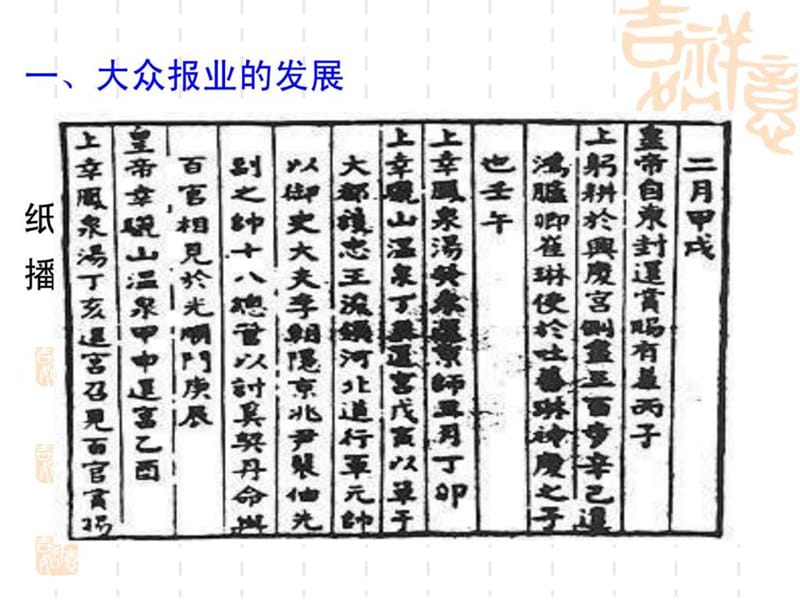 一、大众报业的发展
纸
播
二月甲戌
皇帝自東封還賞賜有差丙子
上躬耕於興慶宮側盡三百步辛巳還
鴻臚卿崔琳使於吐蕃琳神慶之子
也壬午
上幸鳳泉湯癸未還京師丑月丁卯
上幸驪山温泉丁還宮戊寅以單于
大都護忠王浚鎮河北道行軍元帥
以御史大夫李朝隱京兆尹裴伷先
副之帥十八總管以討奚契丹命與
百官相見於光順門庚辰
皇帝幸驪山温泉甲申還宮乙酉
上幸鳳泉湯丁亥還宮召見百官賞賜
吉祥如意